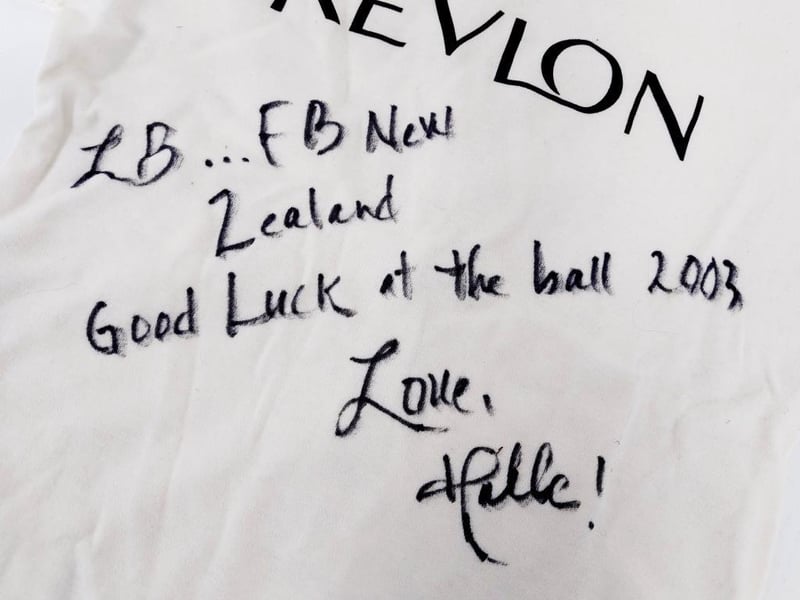 REVLON
LB...FB New
Zealand
Good Luck at the ball 2003
Love,
Halle!